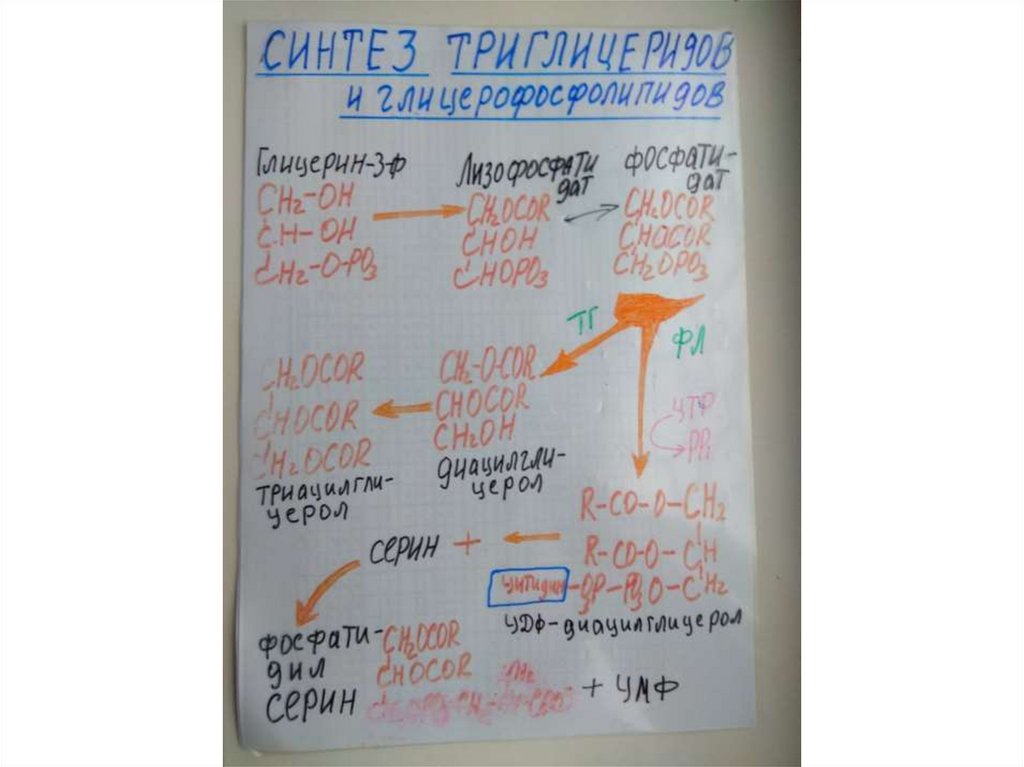 СИНТЕЗ ТРИГЛИЦЕРИДОВ
и глицерофосфолипидов
Глицерин-3-Ф
CH₂-OH
CH-OH
CH₂-O-PO₃
Лизофосфати
дат
CH₂OCOR
CHOH
CHOPO₃
ФОСФАТИ-
дат
CH₂OCOR
CHOCOR
CH₂OPO₃
ТГ
ФЛ
CH₂-O-COR
CHOCOR
CH₂OH
диацилгли-
церол
H₂OCOR
CHOCOR
H₂OCOR
триацилгли-
церол
ЦТФ
PPi
R-CO-O-CH₂
R-CO-O-CH
цитидин-O₃P-P₃O-CH₂
ЦДФ-диацилглицерол
СЕРИН +
ФОСФАТИ-
ДИЛ
СЕРИН
CH₂OCOR
CHOCOR
+ ЦМФ